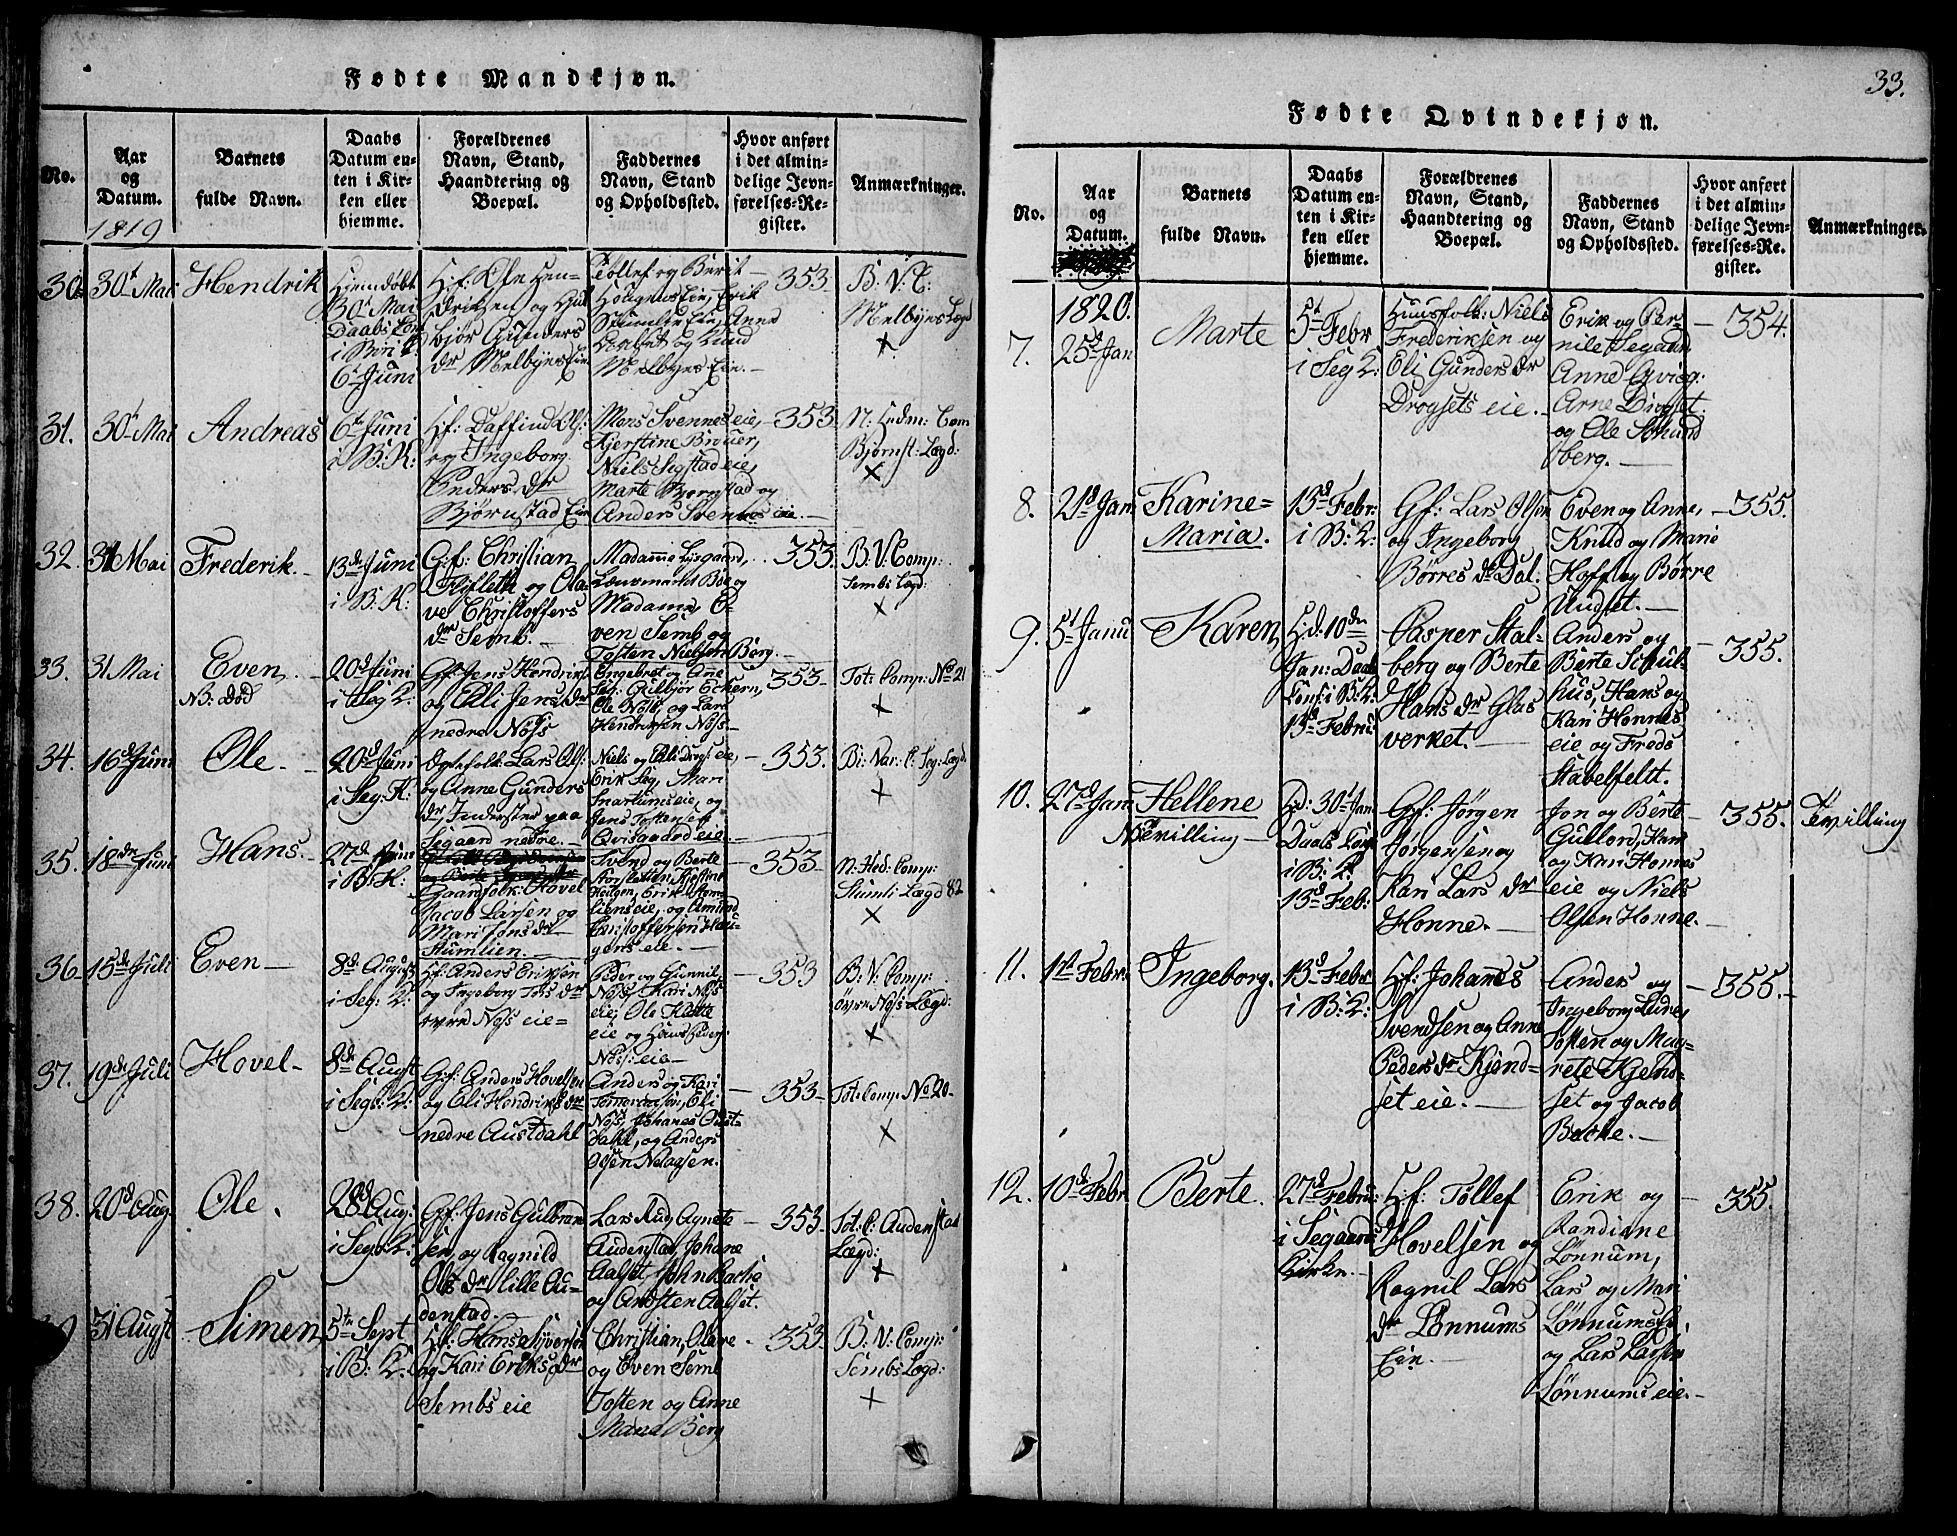 Fødte Mandkjøn.
No.
Aar
og
Datum.
1819
Barnets
fulde Navn.
Daabs
Datum en-
ten i Kir-
ken eller
hjemme.
Forældrenes
Navn, Stand,
Haandtering og
Boepæl.
Faddernes
Navn, Stand
og Opholdssted.
Hvor anført
i det almin-
delige Jevn-
førelses-Re-
gister.
Anmærkninger.
30. 30t Mai
Hendrik
Hjemdöbt
30t Mai
i Biri K:
6t Juni
Hf: Ole Hen-
driksen og
Gunders
dr Melbyes Eie
Tollef og Berit
Erik
Anne
og Knud
Melbyes Eie.
353
B. V. C:
Melbyes Lægd
×
31. 30t Mai
Andreas
6t Juni
i B: K:
Hf: Daffind Ols:
og Ingeborg
Anders dr
Bjørnstad Eie
Mors Svennes eie,
Kjerstine Bröuer,
Niels Sigstad eie,
Marte Bjørnstad og
Anders Svennes eie.
353
N. Hedm: Com
Bjørnst: Lægd:
×
32. 31 Mai
Frederik.
13de Juni
i B. K:
Gf: Christian
og Ola-
ve Christoffers
dr Semb.
Madamme Lysgaard,
Lænsmand Boe og
Madame, E-
ven Semb og
Tosten Nielsen Berg.
353
B. V. Comp:
Sembs Lægd:
×
33. 31 Mai
Even.
NB: död
20d Juni
i Seg K:
Gf: Jens Hendriks:
og Eli Jens dr
nedre Nöss
Engebret og Ane
Seg: Gulbjør Eckern,
Ole Nöss og Lars
Hendriksen Nöss
353
Tot: Comp: No 21
×
34. 16d Juni
Ole.
20d Juni
i Seg: K:
Ægtefolk: Lars Ols:
og Anne Gunders
dr, Inderster paa
Segaard nedre.
Niels og Eli Drogs: eie,
Erik Seg, Mari
Snartums eie, og
Jens Tostensen
Qvisgaard eie.
353.
Bi: Var: C. Seg: Lægd
×
35. 18de Juni
Hans.
27d Juni
i B. K:
Gaardfolk: Hovel
Jacob Larsen og
Mari Jons dr
Stumlien.
Svend og Berte
og Amund
Christoffersen Hau-
gens eie.
353
N: Hed: Comp:
Stuml: Lægd 82
×
36 15de Juli
Even
8de August
i Seg: K:
Hf: Anders Eriksen
og Ingeborg Tors dr
övre Nöss eie
Peder og Gunnil
Nöss, Kari Nöss
eie, Ole Kletté
eie og Hans Peders:
Nöss: eie
353
B: V: Comp:
övre Nöss Lægd:
×
37. 19de Juli
Hovel
8de August
i Seg: K:
Gf: Anders Hovelsen
og Eli Hendriks dr
nedre Austdahl
Anders og Kari
Eli
Nöss, Johanes Aust-
dahl, og Anders
Olsen
353
Tot: Comp: No 20.
×
38. 20d Aug.
Ole.
28d Aug:
i Seg: K:
Gf: Jens Gulbrand-
sen, og Ragnild
Ols dr lille Au-
denstad.
Lars Rud, Agnete
Audenstad, Johane
Aalset, John Bache
og Aalset.
353
Tot: C: Audenstad
Lægd:
×
31 Augst
Simen
5te Sept
i B: K:
Hf: Hans Syversen
og Kari Eriks dr
Sembs eie
Christian, Olave
og Even Semb
Tosten og Anne
Maria Berg
353
B: V: Comp:
Sembs Lægd:
×
33.
Fødte Qvindekjøn.
No.
Aar
og
Datum.
Barnets
fulde Navn.
Daabs
Datum en-
ten i Kir-
ken eller
hjemme.
Forældrenes
Navn, Stand,
Haandtering og
Boepæl.
Faddernes
Navn, Stand
og Opholdssted.
Hvor anført
i det almin-
delige Jevn-
førelses-Re-
gister.
Anmærkninger.
1820.
7. 25d Jan
Marte
5t Febr
i Seg K:
Huusfolk: Niels
Frederiksen og
Eli Gunders dr
Drogsets eie.
Erik og Per-
nille Segaard
Anne Qvisg:
Arne Drogset
og Ole
berg.
354.
8. 21d Jan
Karine=
Maria.
13d Febr:
i B: K:
Gf: Lars Olsen
og Ingeborg
Börres dr Dal:
Even og Anne,
Knud og Marie
Hoff og Börre
Undset.
355.
9. 5t Janu
Karen
Hd: 10de
Jan: Daabs
Conf: i B: K:
13d Febru:
Casper Stal-
berg og Berte
Hans dr Glas
verket.
Anders og
Berte Schul-
hus, Hans og
Kari Honnes
eie og Freds
Stabelfeldt.
355.
10. 27d Jan
Hellene
NB Tvilling
Hd: 30t Jan
Daabs Conf
i B: K:
13d Feb:
Gf: Jörgen
Jörgensen og
Kari Lars dr
Honne.
Jon og Berte
Gullord, Hans
og Kari Honnes
eie og Niels
Olsen Honne.
355.
Tvilling
11. 1st Febr:
Ingeborg.
13d Febr
i B: K:
Hf: Johanes
Svendsen og Anne
Peders dr Kjend-
set eie.
Anders og
Ingeborg Leine,
Tosten og Mag-
rete Kjend-
set og Jacob
Bache.
355.
12. 10de Febr
Berte.
27d Febru:
i Segaard
Kirke
Hf: Tollef
Hovelsen og
Ragnil Lars
dr Lönnums
Eie.
Erik og
Randiane
Lönnum,
Lars og Mari
Lönnums E,
og Lars Larsen
Lönnums eie.
355.